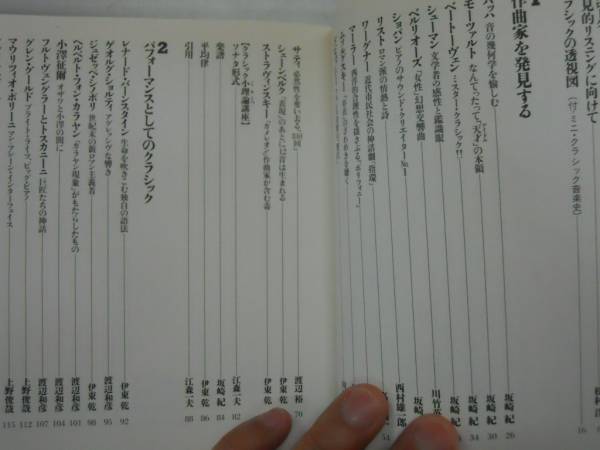 見的リスニングに向けて
シックの透視図〔付・ミニ・クラシック音楽史〕
16
1
作曲家を発見する
バッハ 音の幾何学を愉しむ 坂崎 紀 26
モーツァルト なんてったって「天才」の本領 坂崎 紀 30
ベートーヴェン ミスター・クラシック!! 坂崎 紀 34
シューマン 文学者の感性と鑑識眼
ベルリオーズ 「女性」幻想交響曲
ショパン ピアノのサウンド・クリエイターNo.1
リスト ロマン派の情熱と詩 西村雄一郎
ワーグナー 近代市民社会の神話劇「指環」
マーラー 西洋的合理性を揺さぶる、「ポリフォニー」 54
サティ 必然性を奪いさる、「840回」 渡辺 裕 70
シェーンベルク 「表現」のあとに音は生まれる 伊東 乾
ストラヴィンスキー カメレオン作曲家が含む毒 伊東 乾
【クラシック小理論講座】
ソナタ形式 江森一夫 82
楽譜 坂崎 紀 84
平均律 伊東 乾 86
引用 江森一夫 88
2
パフォーマンスとしてのクラシック
レナード・バーンスタイン 生命を吹きこむ独自の語法 伊東 乾 92
ゲオルグ・ショルティ アグレッシヴな響き 渡辺和彦 95
ジュゼッペ・シノポリ 世紀末の新ロマン主義者 伊東 乾 98
ヘルベルト・フォン・カラヤン 「カラヤン現象」がもたらしたもの 渡辺和彦 101
小澤征爾 オザワと小澤の間に 渡辺和彦 104
フルトヴェングラーとトスカニーニ 巨匠たちの神話 渡辺和彦 107
グレン・グールド ブライトライツ、ビッグ・ピアノ 上野俊哉 112
マウリツィオ・ポリーニ マン・アレーナ・インターフェイス 上野俊哉 115